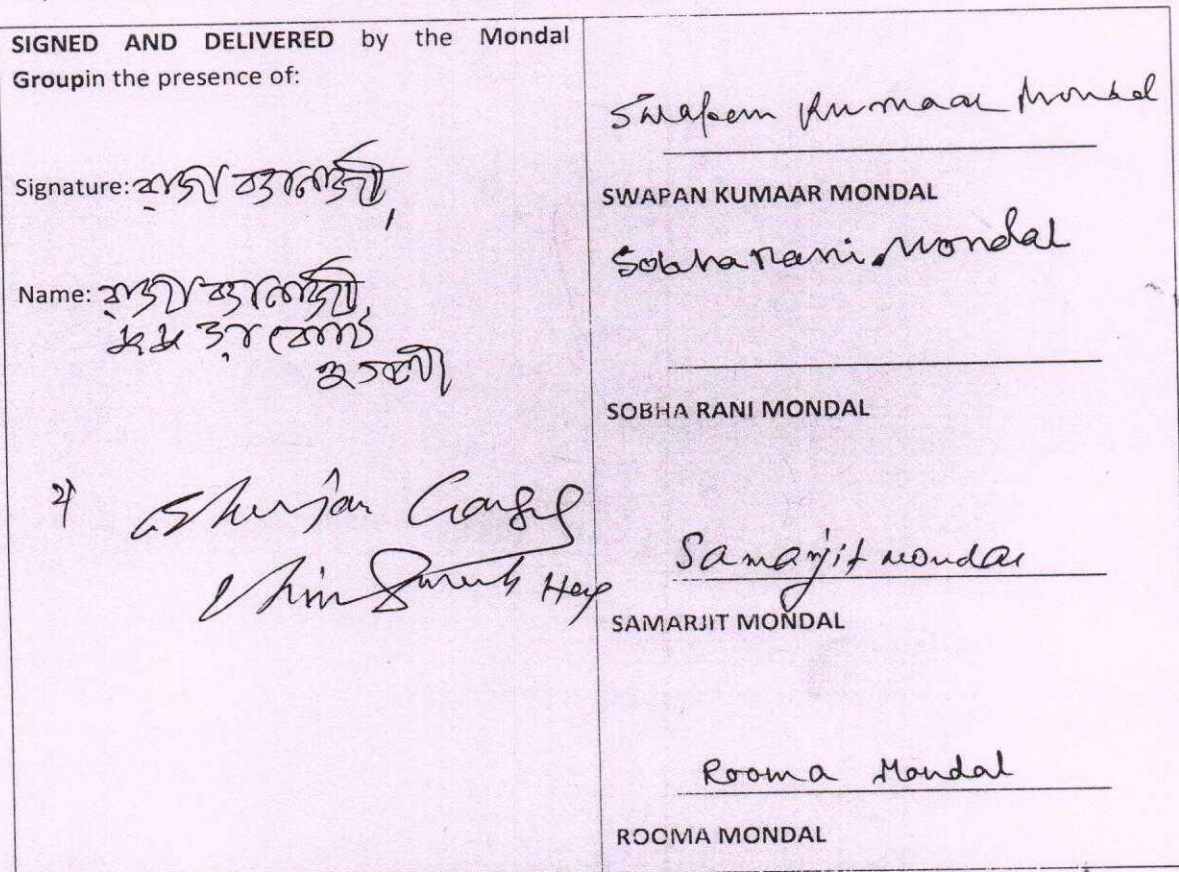 SIGNED AND DELIVERED by the Mondal
Groupin the presence of:
Signature: রাজা ব্যানার্জী,
Name: রাজা ব্যানার্জী
হুগলী
Swapan Kumaar Mondal
SWAPAN KUMAAR MONDAL
Sobha Rani Mondal
SOBHA RANI MONDAL
Samarjit Mondal
SAMARJIT MONDAL
Rooma Mondal
ROOMA MONDAL